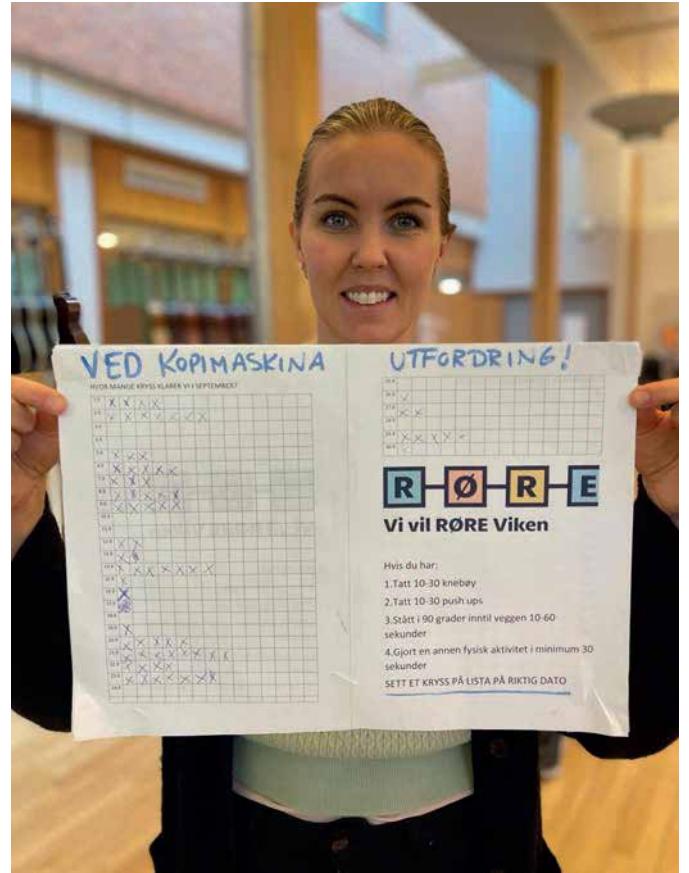 VED KOPIMASKINA
HVOR MANGE KRYSS KLARER VI I SEPTEMBER?
UTFORDRING!
RØRE
Vi vil RØRE Viken
Hvis du har:
1.Tatt 10-30 knebøy
2.Tatt 10-30 push ups
3.Stått i 90 grader inntil veggen 10-60
sekunder
4.Gjort en annen fysisk aktivitet i minimum 30
sekunder
SETT ET KRYSS PÅ LISTA PÅ RIKTIG DATO